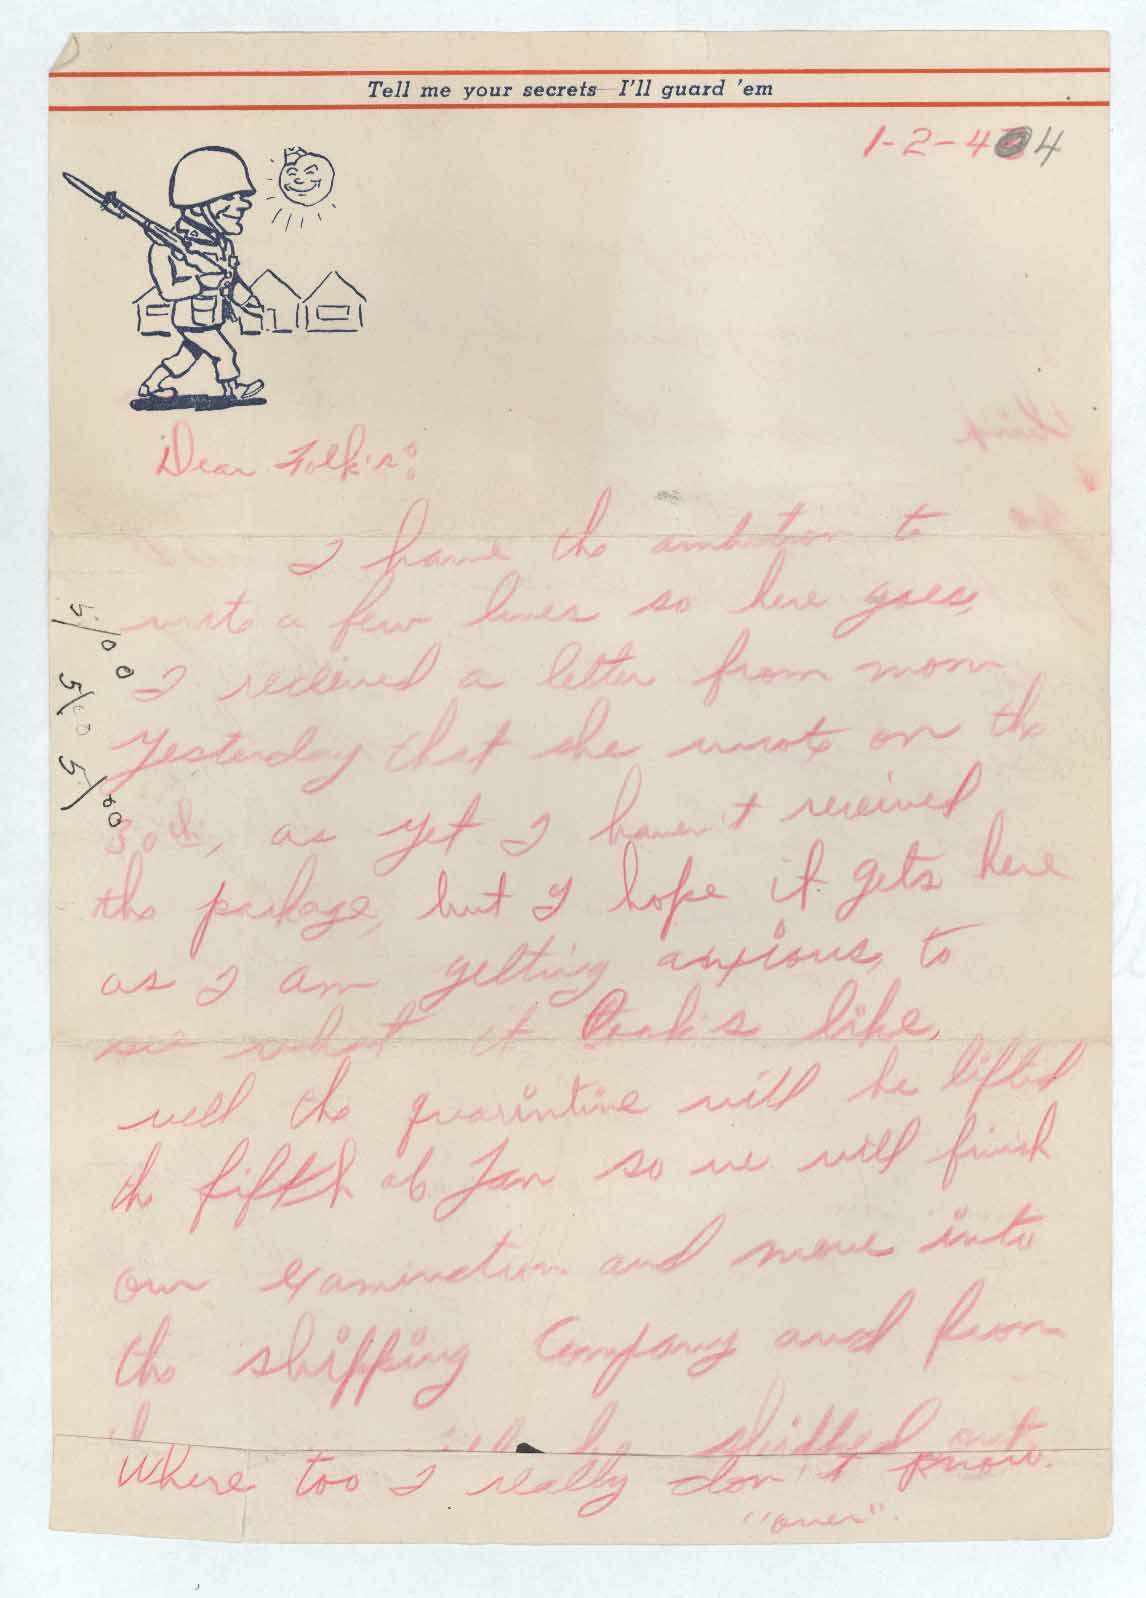 Tell me your secrets—I'll guard 'em
1-2-44
Dear Folk's:
I have the ambition to
write a few lines so here goes,
I recieved a letter from mom
Yesterday that she wrote on the
30th, as yet I haven't received
the package, but I hope it gets here
as I am getting anxious, to
see what it looks like,
well the quarintine will be lifted
the fifth of Jan so we will finish
our examination and move into
the shipping Company and from
be shipped out.
Where too I really don't know.
"over".
5/00
5/00
5/00